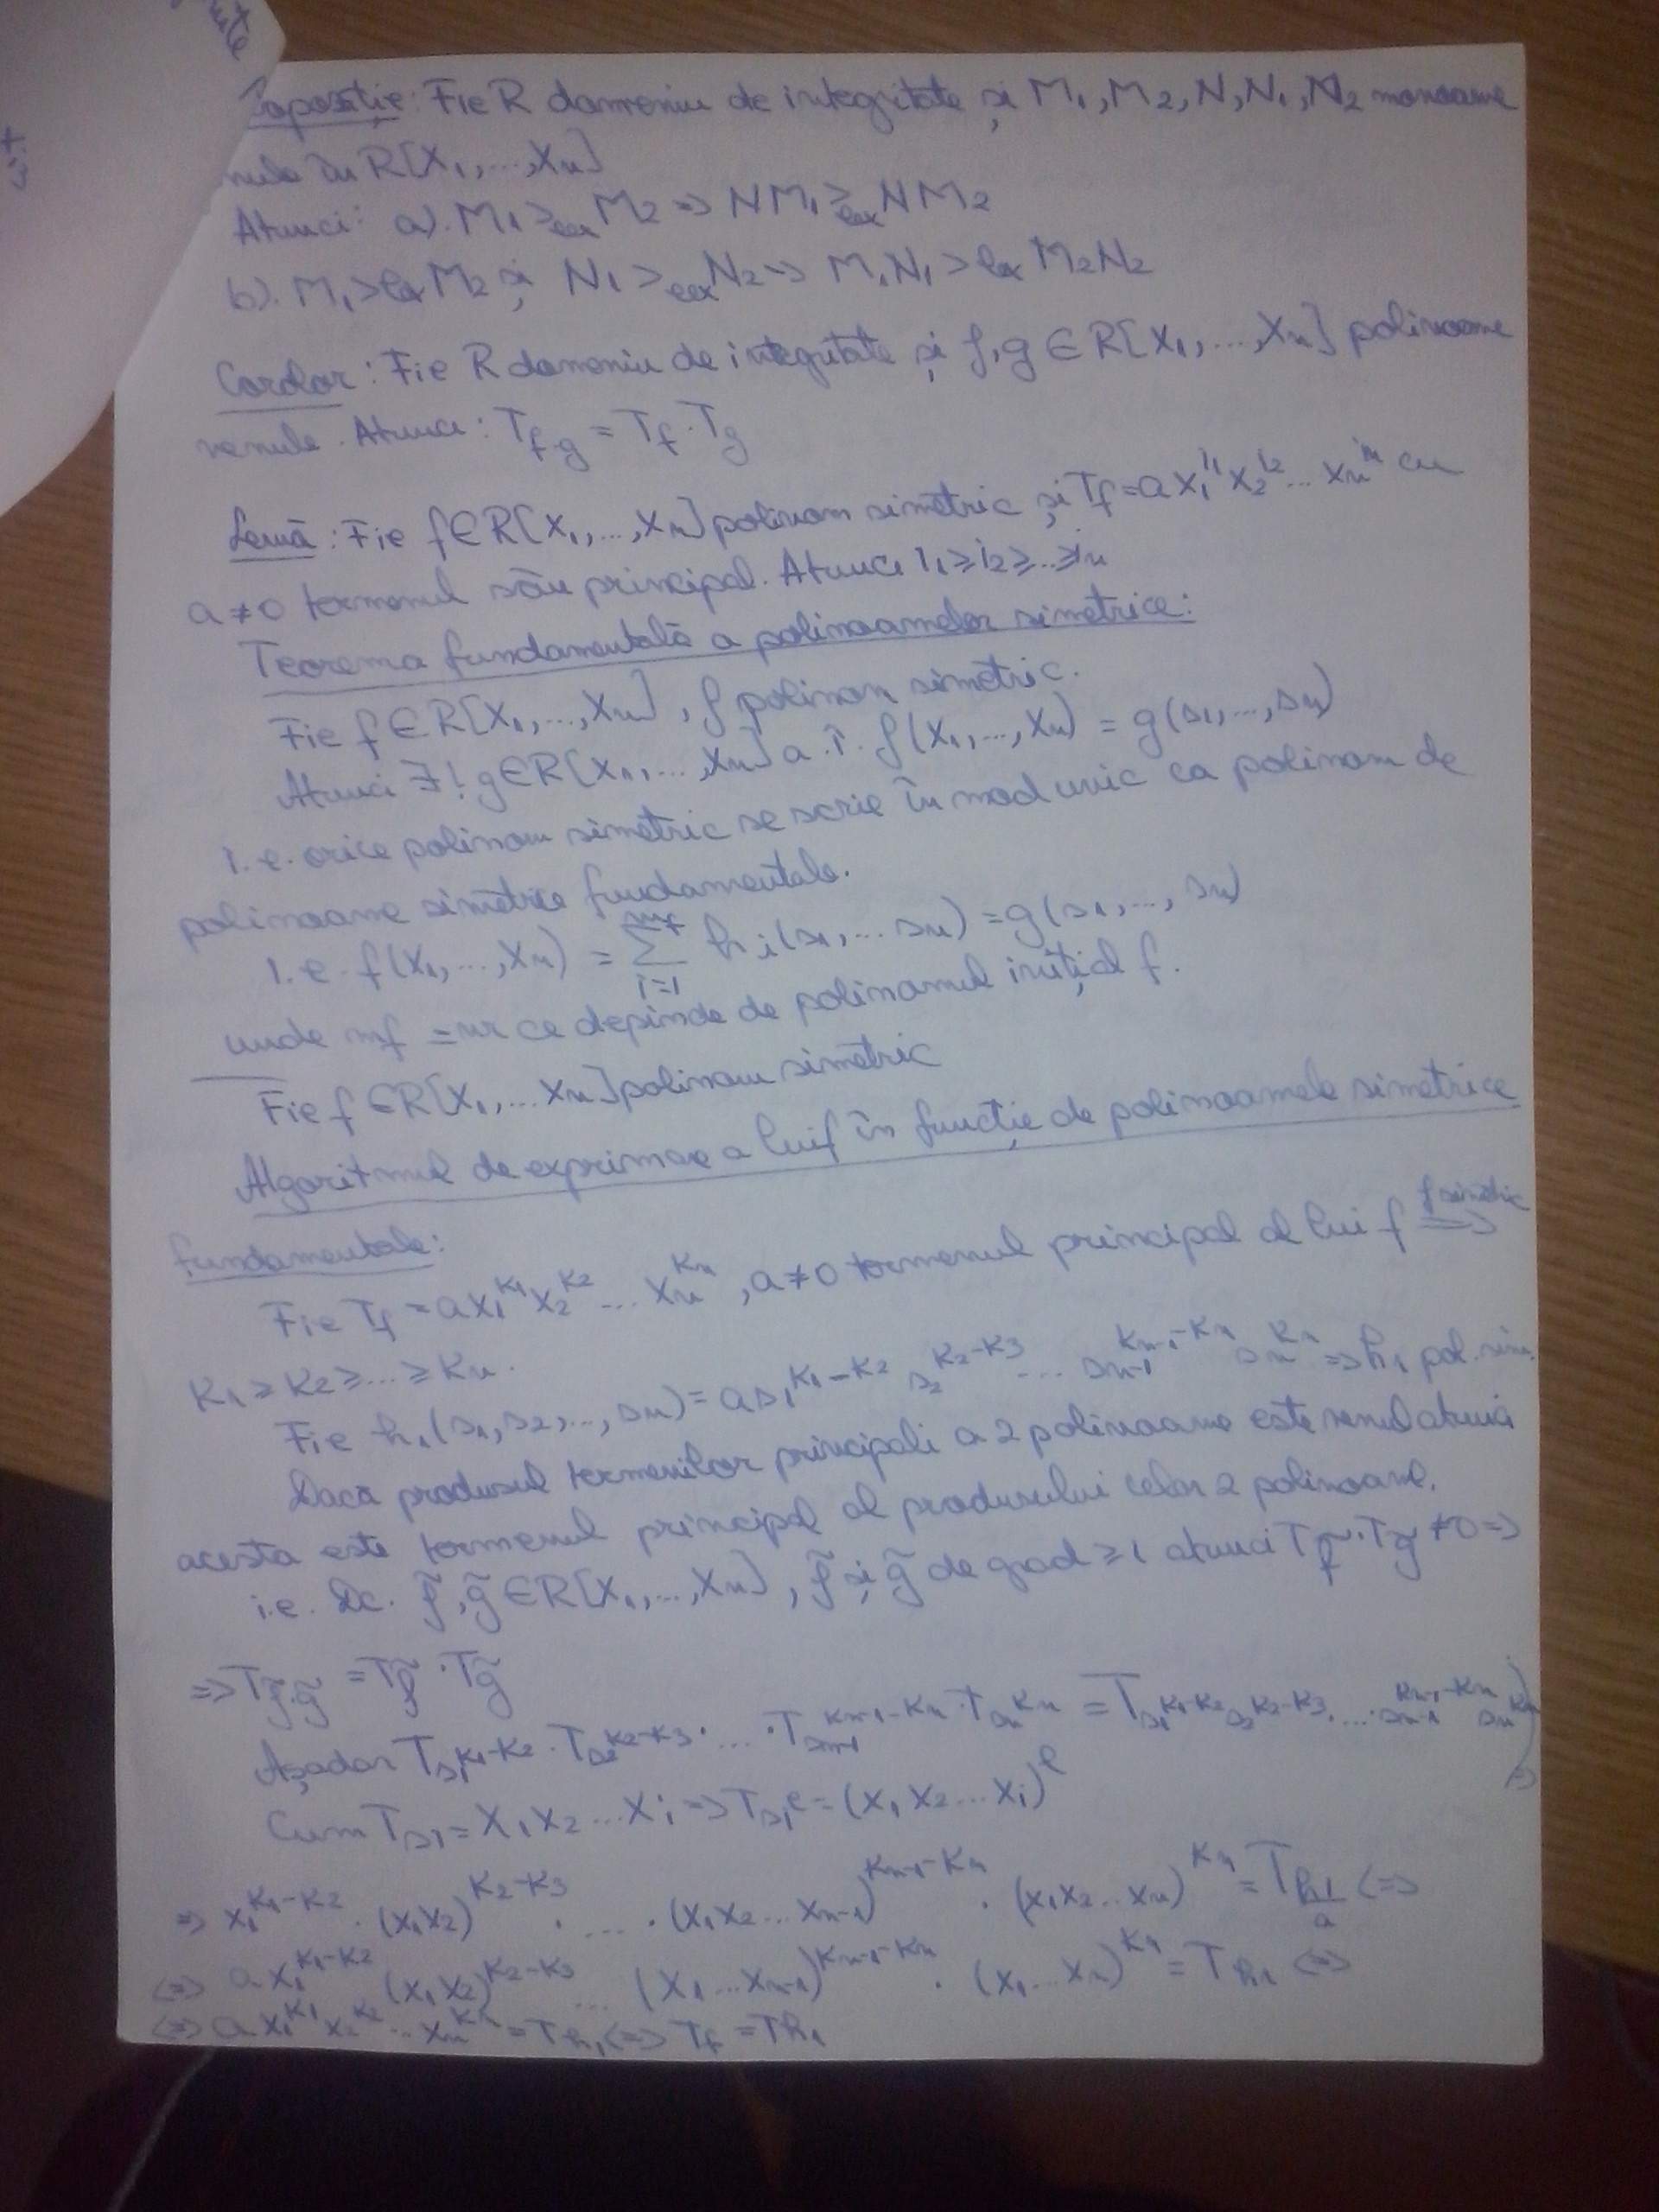 nute
Propoziție: Fie R domeniu de integritate și M₁, M₂, N, N₁, N₂ monoame
nule în R[X₁,...,Xₙ]
Atunci: a). M₁ ≥lex M₂ => NM₁ ≥lex NM₂
b). M₁ >lex M₂ și N₁ >lex N₂ => M₁N₁ >lex M₂N₂
Corolar: Fie R domeniu de integritate și f,g ∈ R[X₁,...,Xₙ] polinoame
nenule. Atunci: T_{f·g} = T_f · T_g
Lemă: Fie f∈R[X₁,...,Xₙ] polinom simetric și T_f = aX₁^{i₁} X₂^{i₂} ... Xₙ^{iₙ} cu
a≠0 termenul său principal. Atunci i₁ ≥ i₂ ≥ ... ≥ iₙ
Teorema fundamentală a polinoamelor simetrice:
Fie f ∈ R[X₁,...,Xₙ], f polinom simetric.
Atunci ∃! g∈R[X₁,...,Xₙ] a.î. f(X₁,...,Xₙ) = g(s₁,...,sₙ)
i.e. orice polinom simetric se scrie în mod unic ca polinom de
polinoame simetrice fundamentale.
i.e. f(X₁,...,Xₙ) = Σ_{i=1}^{mf} h_i(s₁,...sₙ) = g(s₁,...,sₙ)
unde mf = nr ce depinde de polinomul inițial f.
Fie f ∈ R[X₁,...Xₙ] polinom simetric
Algoritmul de exprimare a lui f în funcție de polinoamele simetrice
fundamentale:
Fie T_f = aX₁^{k₁} X₂^{k₂} ... Xₙ^{kₙ}, a≠0 termenul principal al lui f =f simetric=>
k₁ ≥ k₂ ≥ ... ≥ kₙ.
Fie h₁(s₁,s₂,...,sₙ) = as₁^{k₁-k₂} s₂^{k₂-k₃} ... sₙ₋₁^{kₙ₋₁-kₙ} sₙ^{kₙ} => h₁ pol. sim.
Dacă produsul termenilor principali a 2 polinoame este nenul atunci
acesta este termenul principal al produsului celor 2 polinoame.
i.e. Dc. f̃, g̃ ∈ R[X₁,...,Xₙ], f̃ și g̃ de grad ≥ 1 atunci T_f̃ · T_g̃ ≠ 0 =>
=> T_{f̃·g̃} = T_f̃ · T_g̃
Așadar T_{s₁^{k₁-k₂}} · T_{s₂^{k₂-k₃}} · ... · T_{sₙ₋₁^{kₙ₋₁-kₙ}} · T_{sₙ^{kₙ}} = T_{s₁^{k₁-k₂} s₂^{k₂-k₃} · ... · sₙ₋₁^{kₙ₋₁-kₙ} sₙ^{kₙ}} =>
Cum T_{si} = X₁X₂...Xi => T_{si^e} = (X₁X₂...Xi)^e
=> X₁^{k₁-k₂} · (X₁X₂)^{k₂-k₃} · ... · (X₁X₂...Xₙ₋₁)^{kₙ₋₁-kₙ} · (X₁X₂...Xₙ)^{kₙ} = T_{h₁/a} <=>
<=> aX₁^{k₁-k₂} (X₁X₂)^{k₂-k₃} ... (X₁...Xₙ₋₁)^{kₙ₋₁-kₙ} · (X₁...Xₙ)^{kₙ} = T_{h₁} <=>
<=> aX₁^{k₁} X₂^{k₂} ... Xₙ^{kₙ} = T_{h₁} <=> T_f = T_{h₁}